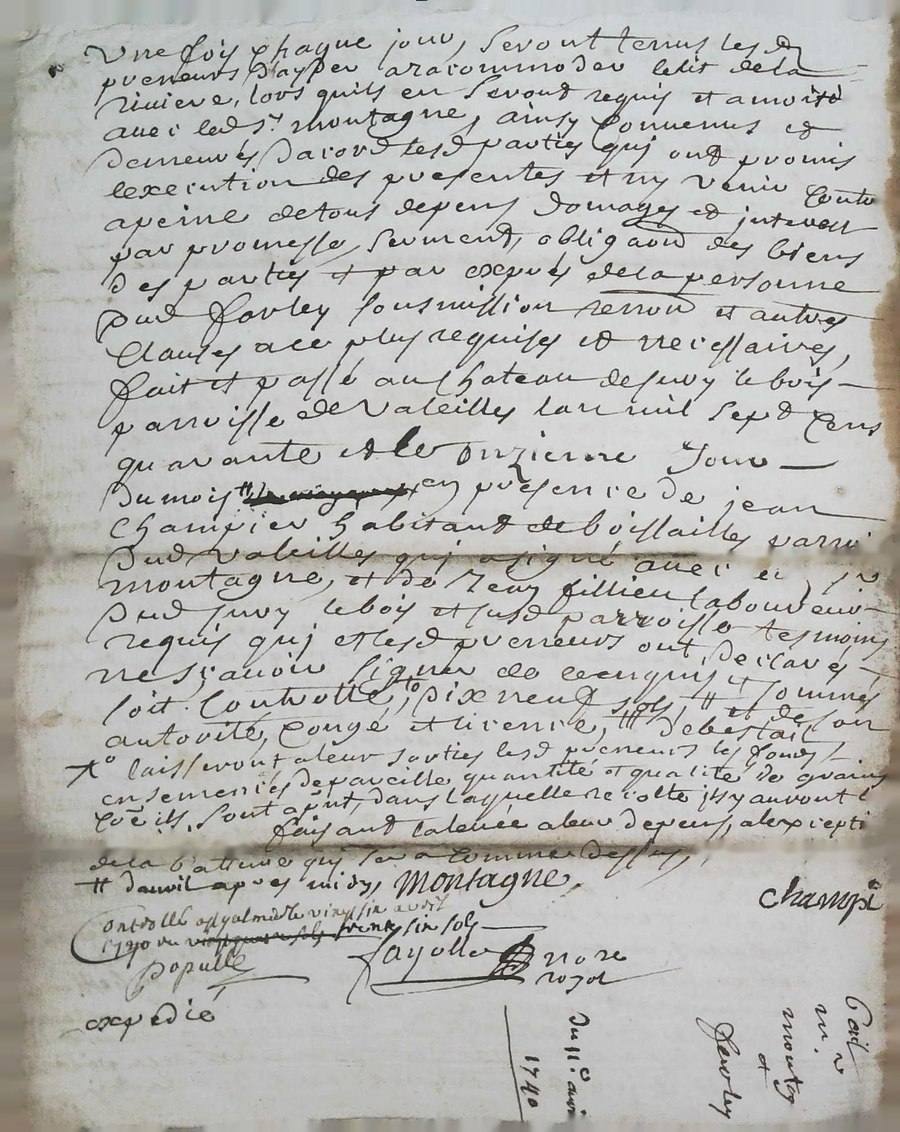 Une fois chaque jour, seront tenus lesd
preneurs d'ayder aracommoder le lit dela
riviere, lors quils en seront requis et a moitié
avec led Sr. montagne, ainsy convenus et
demeurés dacord lesd parties quj ont promis
lexecution des presentes et ny venir contr
apeine detous depens domages et interest
par promesse, serment, obligaon des biens
des parties et par exprés dela personne
dud forley sousmission renon et autres
Clauses ace plus requises et necessaires,
fait et passé au chateau desury lebois
parroisse de Valeilles lan mil sept cens
quarante et le onzieme Jour
du mois # en presence de jean
Champier habitant de boissailles parroi
dud valeilles quj a signé avec
montagne, et de Jean fillieu laboureur
dud sury lebois et susd parroisse tesmoins
requis quj et lesd preneurs ont declarés
ne sçavoir signer de cenquis et sommés
soit controllé, dix neuf sols, # et de son
autorité, congé et licence, ## debestail
+o laisseront aleur sorties lesd preneurs les fonds
ensemencés depareille quantité et qualité de grains
coe ils sont apnt, dans laquelle recolte ils y auront l
faisant talevée aleur depens, alexcepti
dela batture quj sera comme dessus,
# davril apres midy, Montagne
Champi
Controllé a le vingt six avril
1740 reçu trente six sols
Populle
fayolle nore royal
expedié
Bail
Mr
montag
et
forley
du 11e avri
1740